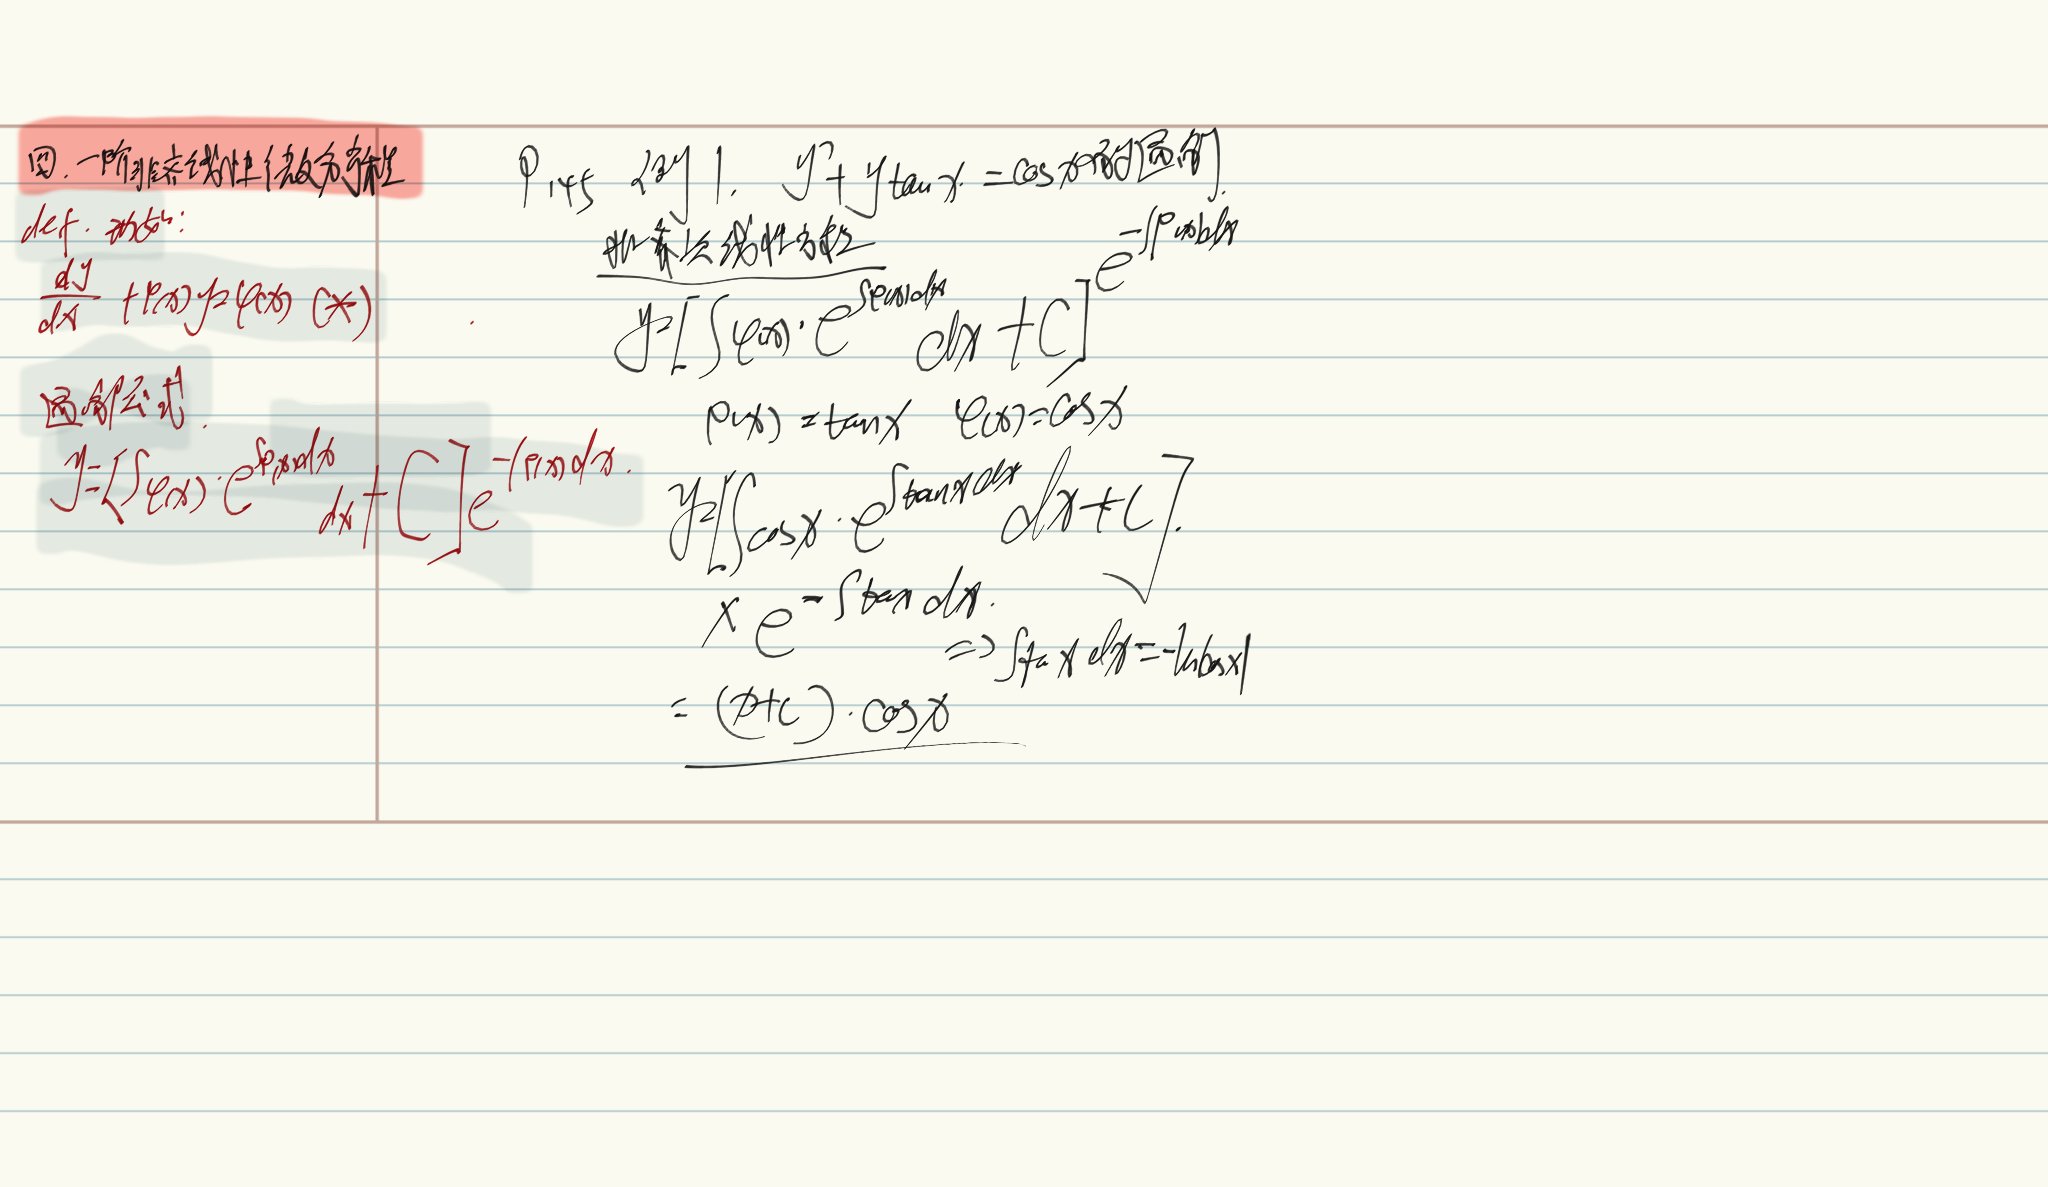 四.一阶非齐线性微分方程
def. 形如:
dy/dx + P(x) y = φ(x) (*)
通解公式.
y = [∫φ(x)·e^{∫P(x)dx} dx + C] e^{-∫P(x)dx}.
P145 例1. y' + y tan x = cos x 的通解.
非齐次线性方程
y = [∫φ(x)·e^{∫P(x)dx} dx + C] e^{-∫P(x)dx}
P(x) = tan x φ(x) = cos x
y = [∫cos x · e^{∫tan x dx} dx + C].
× e^{-∫tan x dx}.
⇒ ∫tan x dx = -ln|cos x|
= (x + c) · cos x